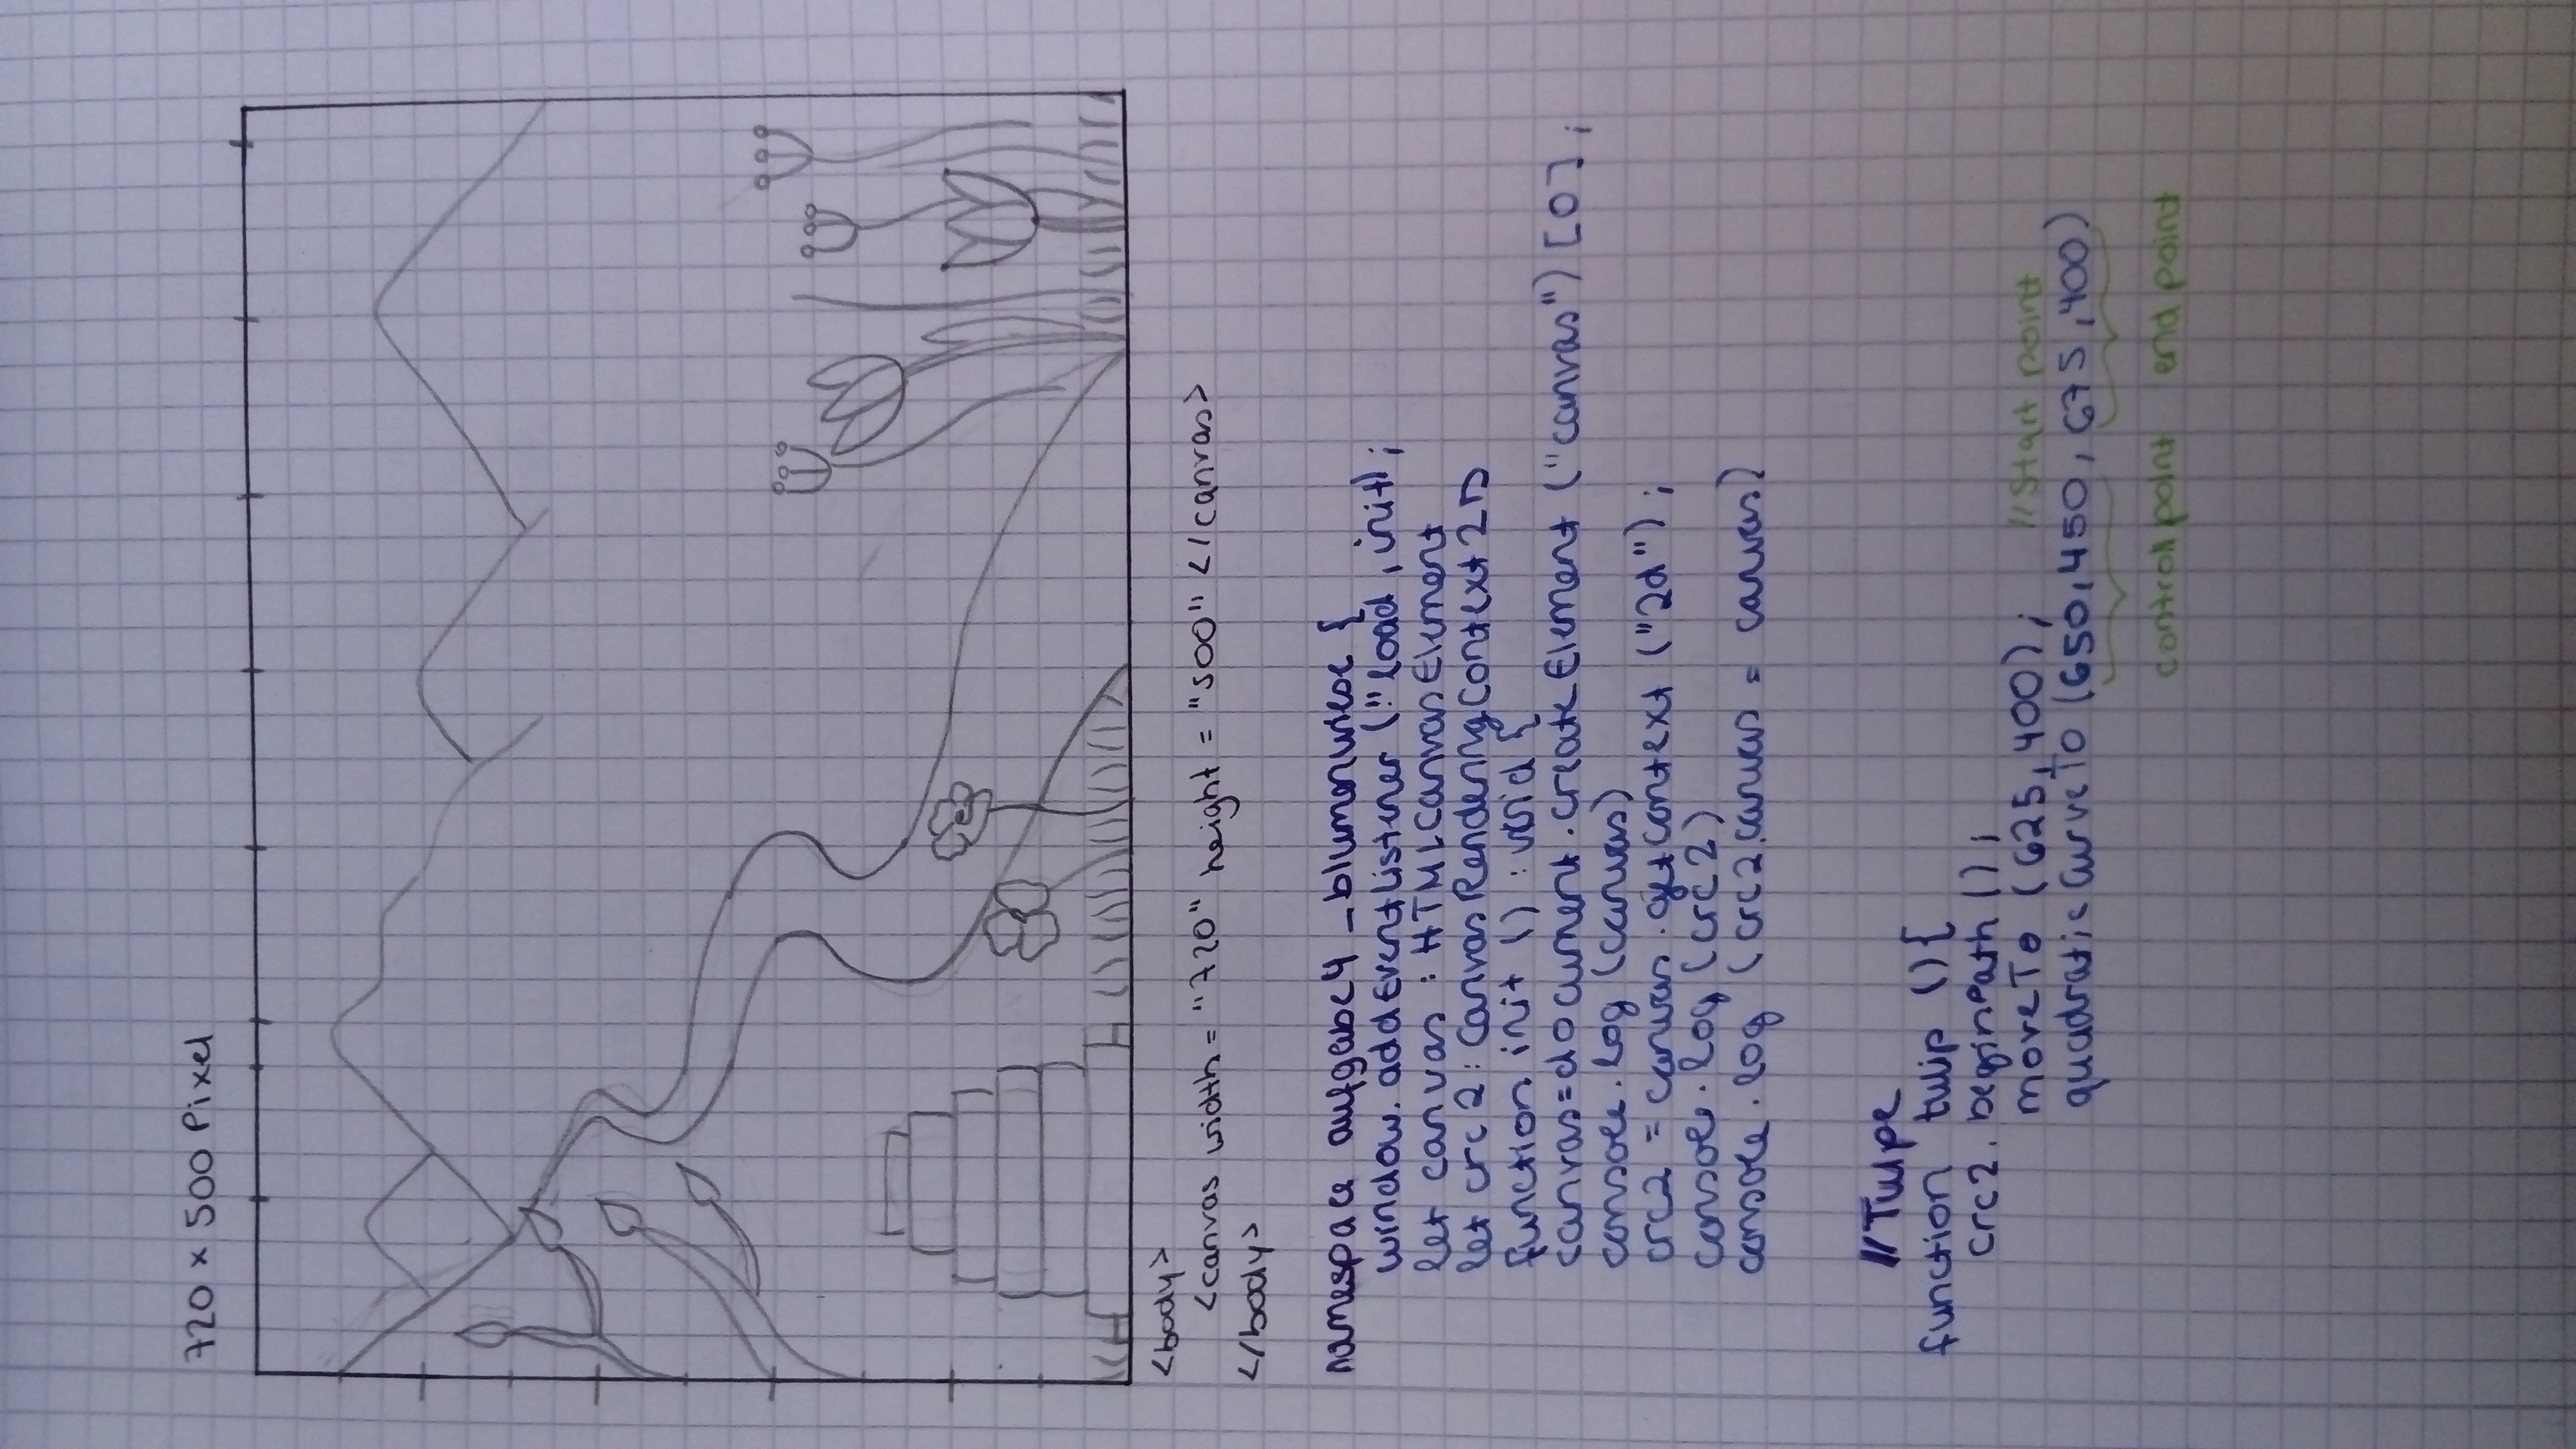 720 × 500 Pixel
<body>
<canvas width = "720" height = "500" </canvas>
</body>
namespace aufgabe4_blumenwiese {
window.addEventListener ("load, init);
let canvas : HTMLCanvasElement
let crc2 : CanvasRenderingContext2D
function init () : void {
canvas=document.createElement ("canvas") [0] ;
console.log (canvas)
crc2 = canvas.getContext ("2d") ;
console.log (crc2)
console.log (crc2.canvas = canvas)
//Tulpe
function tulip () {
crc2. beginPath () ;
moveTo (625, 400) ; //Start point
quadraticCurveTo (650, 450, 675, 400)
controll point end point